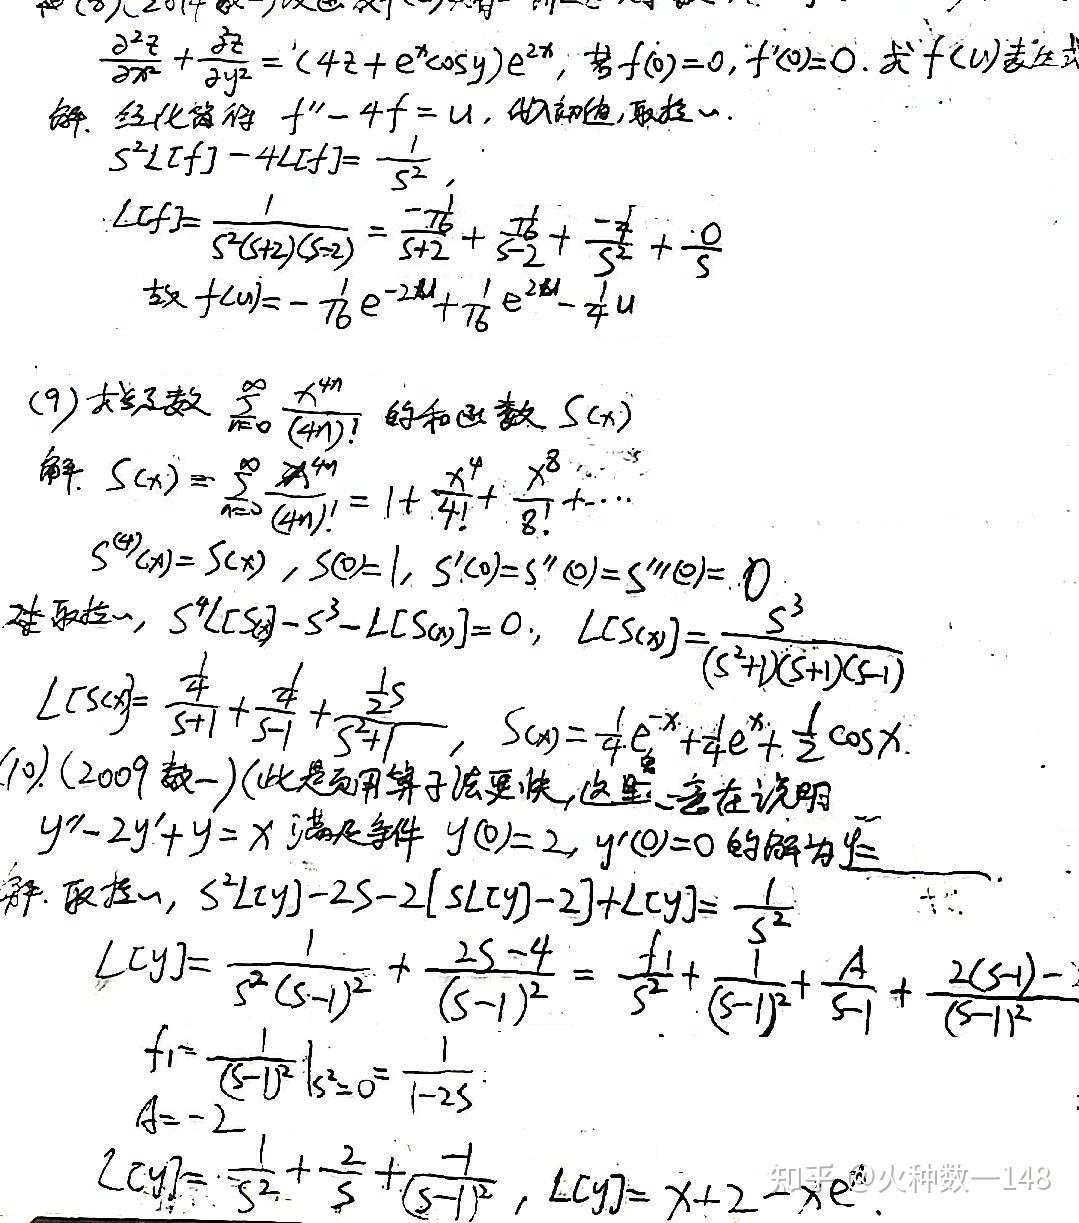 (8)(2014数一)
∂²z/∂x² + ∂²z/∂y² = (4z+eˣcosy)e²ˣ, 若f(0)=0, f'(0)=0. 求f(u)表达式
解. 经化简得 f''-4f=u, 代入初值, 取拉~.
S²L[f]-4L[f]=1/S²,
L[f]=1/(S²(S+2)(S-2)) = (-1/16)/(S+2) + (1/16)/(S-2) + (-1/4)/S² + 0/S
故 f(u)=-1/16 e^(-2u) + 1/16 e^(2u) - 1/4 u
(9) 求级数 ∑_{n=0}^∞ x^(4n)/(4n)! 的和函数 S(x)
解. S(x)=∑_{n=0}^∞ x^(4n)/(4n)! = 1+x⁴/4!+x⁸/8!+……
S⁽⁴⁾(x)=S(x), S(0)=1, S'(0)=S''(0)=S'''(0)=0
取拉~, S⁴L[S(x)]-S³-L[S(x)]=0., L[S(x)]=S³/((S²+1)(S+1)(S-1))
L[S(x)]=(1/4)/(S+1)+(1/4)/(S-1)+(1/2 S)/(S²+1), S(x)=1/4 e^(-x)+1/4 eˣ+1/2 cosx.
(10).(2009数一)(此题用算子法更快,这里意在说明
y''-2y'+y=x 满足条件 y(0)=2, y'(0)=0的解为y=______.
解. 取拉~, S²L[y]-2S-2[SL[y]-2]+L[y]=1/S²
L[y]=1/(S²(S-1)²)+(2S-4)/(S-1)²=f₁/S²+1/(S-1)²+A/(S-1)+(2(S-1)-2)/(S-1)²
f₁=1/(S-1)²|S²=0=1/(1-2S)
A=-2
L[y]=1/S²+2/S+(-1)/(S-1)², L[y]=x+2-xeˣ.
知乎 @火种数一148